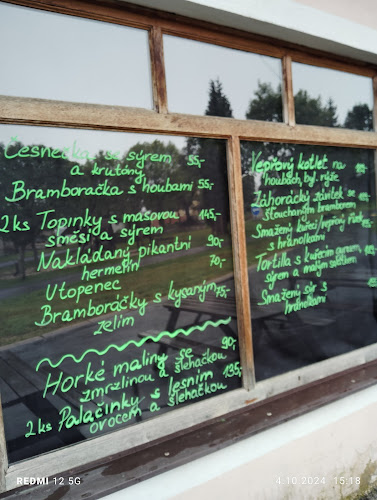 Česnečka se sýrem 55,-
a krutóny
Bramboračka s houbami 55,-
2ks Topinky s masovou 145,-
směsi a sýrem
Nakládaný pikantní 90,-
hermelín
Utopenec 70,-
Bramboráčky s kysaným 75,-
zelím
Horké maliny se 90,-
zmrzlinou a šlehačkou
2ks Palačinky s lesním 195,-
ovocem a šlehačkou
Vepřový kotlet na
houbách, byl. rýže
Záhorácký závitek se
šťouchaným bramborem
Smažený kuřecí/vepřový řízek
s hranolkami
Tortilla s kuřecím masem,
sýrem a malým salátkem
Smažený sýr s
hranolkami
REDMI 12 5G
4.10.2024 15:18